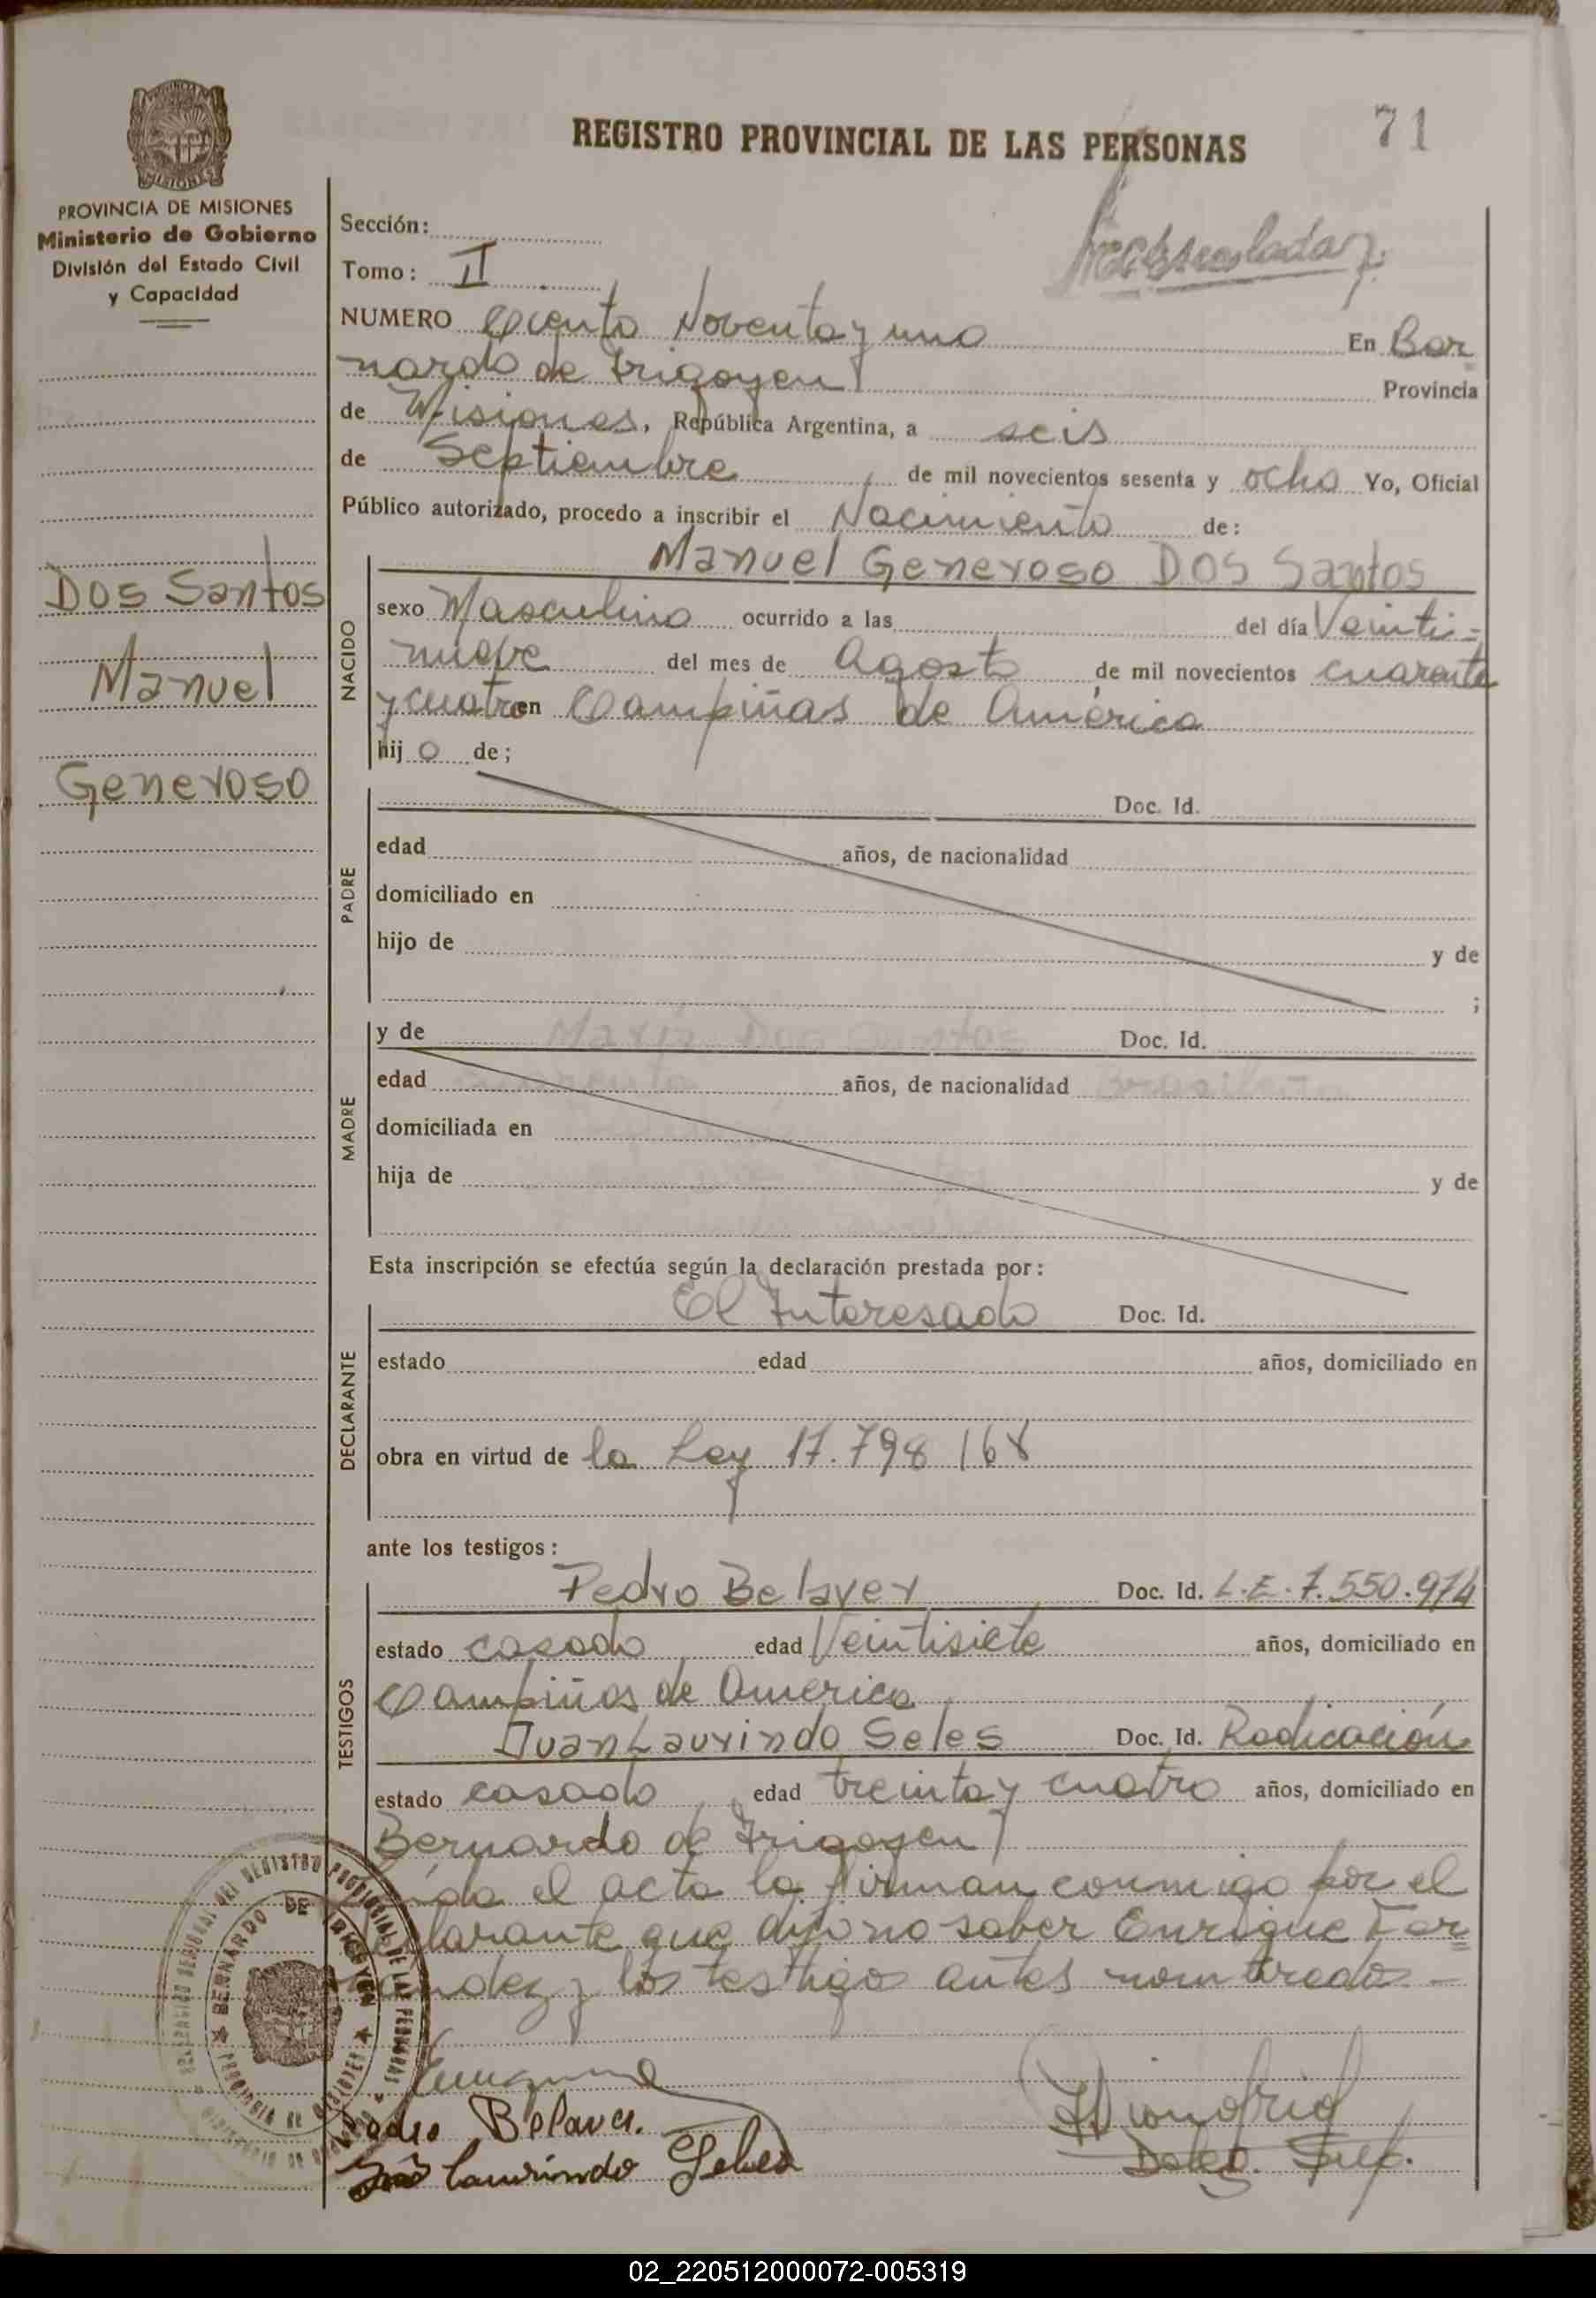 71
REGISTRO PROVINCIAL DE LAS PERSONAS
PROVINCIA DE MISIONES
Ministerio de Gobierno
División del Estado Civil
y Capacidad
Sección:
Tomo: II
NUMERO Ciento Noventa y uno En Ber
nardo de Irigoyen Provincia
de Misiones, República Argentina, a seis
de Septiembre de mil novecientos sesenta y ocho Yo, Oficial
Público autorizado, procedo a inscribir el Nacimiento de:
Dos Santos
Manuel
Generoso
NACIDO
Manuel Generoso DOS Santos
sexo Masculino ocurrido a las del día Veinti-
nueve del mes de Agosto de mil novecientos cuarenta
y cuatro en Campiñas de América
hijo de;
PADRE
Doc. Id.
edad años, de nacionalidad
domiciliado en
hijo de y de
;
MADRE
y de María Dos Santos Doc. Id.
edad años, de nacionalidad Brasileña
domiciliada en
hija de y de
Esta inscripción se efectúa según la declaración prestada por:
DECLARANTE
El Interesado Doc. Id.
estado edad años, domiciliado en
obra en virtud de la Ley 17.798/68
ante los testigos:
TESTIGOS
Pedro Belaver Doc. Id. L.E. 7.550.974
estado casado edad Veintisiete años, domiciliado en
Campiñas de America
Juan Laurindo Seles Doc. Id. Radicación
estado casado edad treinta y cuatro años, domiciliado en
Bernardo de Irigoyen
el acta la firman conmigo por el
declarante que dijo no saber Enrique Fer
nandez y los testigos antes nombrados -
Pedro Belaver.
Laurindo Seles
02_220512000072-005319